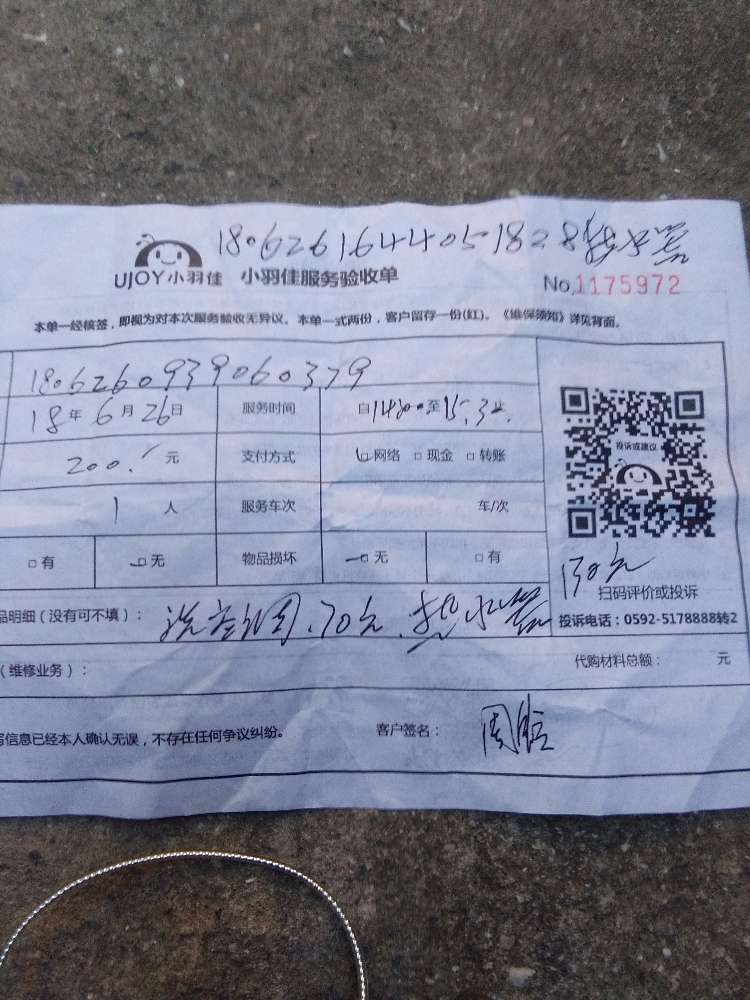 1806261644051828热水器
UJOY小羽佳 小羽佳服务验收单
No.1175972
本单一经核签，即视为对本次服务验收无异议。本单一式两份，客户留存一份(红)。《维保须知》详见背面。
1806260939060379
18年6月26日 服务时间 自14:00至15:32
200.- 元 支付方式 □网络 □现金 □转账
1 人 服务车次 车/次
□有 □无 物品损坏 □无 □有
投诉或建议
130元
扫码评价或投诉
投诉电话：0592-5178888转2
品明细（没有可不填）： 洗空调.70元.热水器
（维修业务）： 代购材料总额： 元
写信息已经本人确认无误，不存在任何争议纠纷。 客户签名： 周